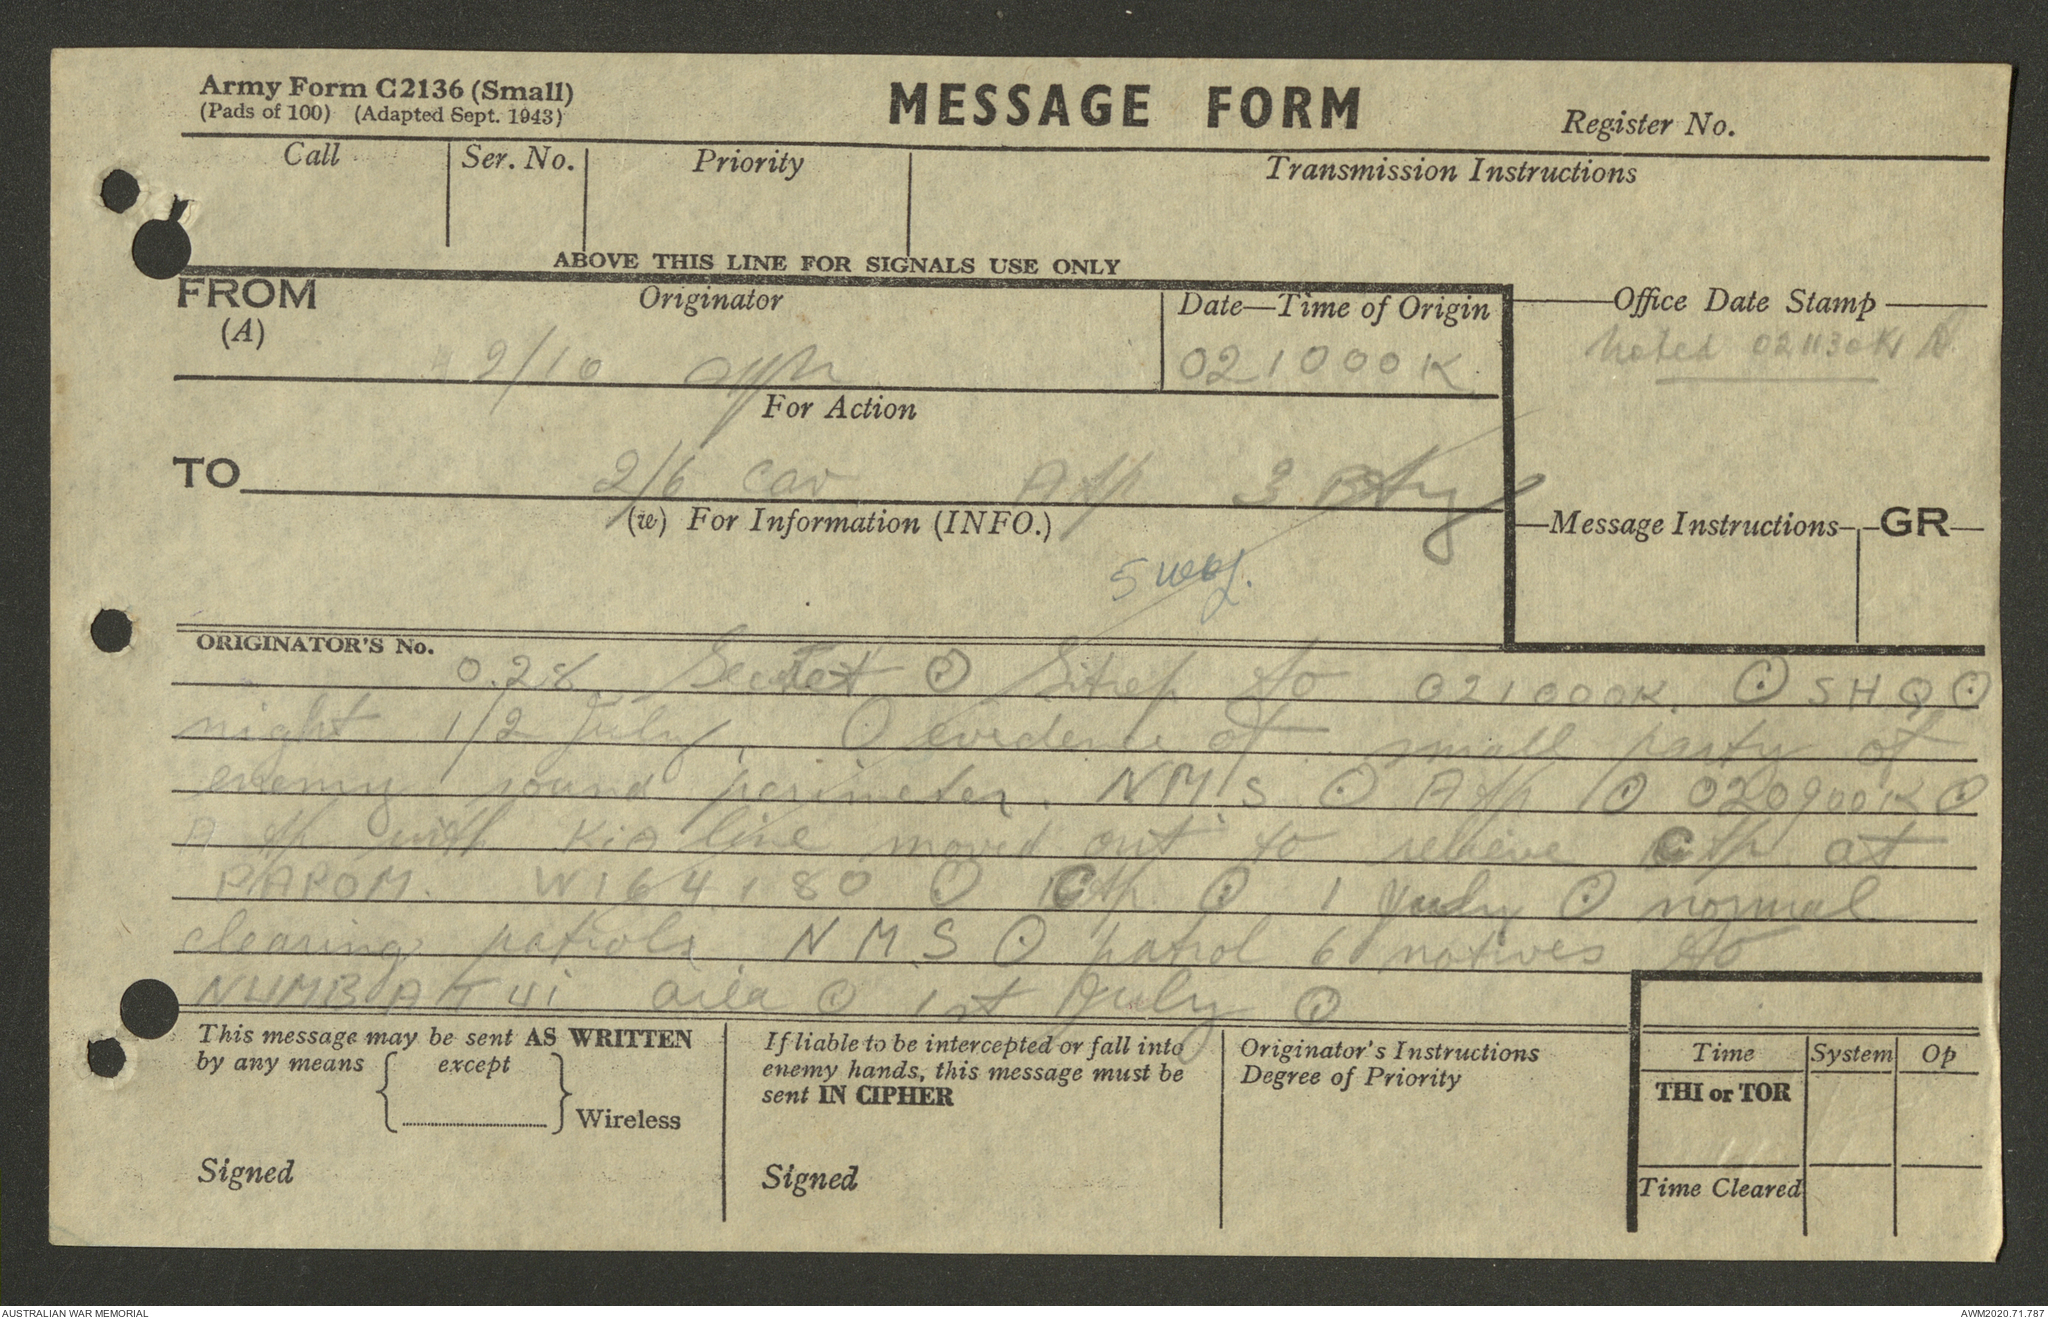 Army Form C2136 (Small)
(Pads of 100) (Adapted Sept. 1943)
MESSAGE FORM
Register No.
Call Ser. No. Priority Transmission Instructions
ABOVE THIS LINE FOR SIGNALS USE ONLY
FROM
(A)
Originator
Date—Time of Origin
Office Date Stamp
Noted 021130K
2/10
021000K
For Action
TO
2/6 Cav A Tp 3 Bty
(w) For Information (INFO.)
Message Instructions GR
ORIGINATOR'S No.
0.28 Secret ⊙ Sitrep to 021000K. ⊙ SHQ ⊙
night 1/2 July, ⊙ evidence of small party of
enemy round perimeter. NMS ⊙ A Tp ⊙ 020900K ⊙
A tp with Kia line moved out to relieve C tp. at
PAPOM. W164180 ⊙ C tp. ⊙ 1 July ⊙ normal
clearing patrols. NMS ⊙ patrol 6 natives to
NUMBATUI area ⊙ 1st July ⊙
This message may be sent AS WRITTEN
by any means { except } Wireless
Signed
If liable to be intercepted or fall into
enemy hands, this message must be
sent IN CIPHER
Signed
Originator's Instructions
Degree of Priority
Time System Op
THI or TOR
Time Cleared
AUSTRALIAN WAR MEMORIAL
AWM2020.71.787